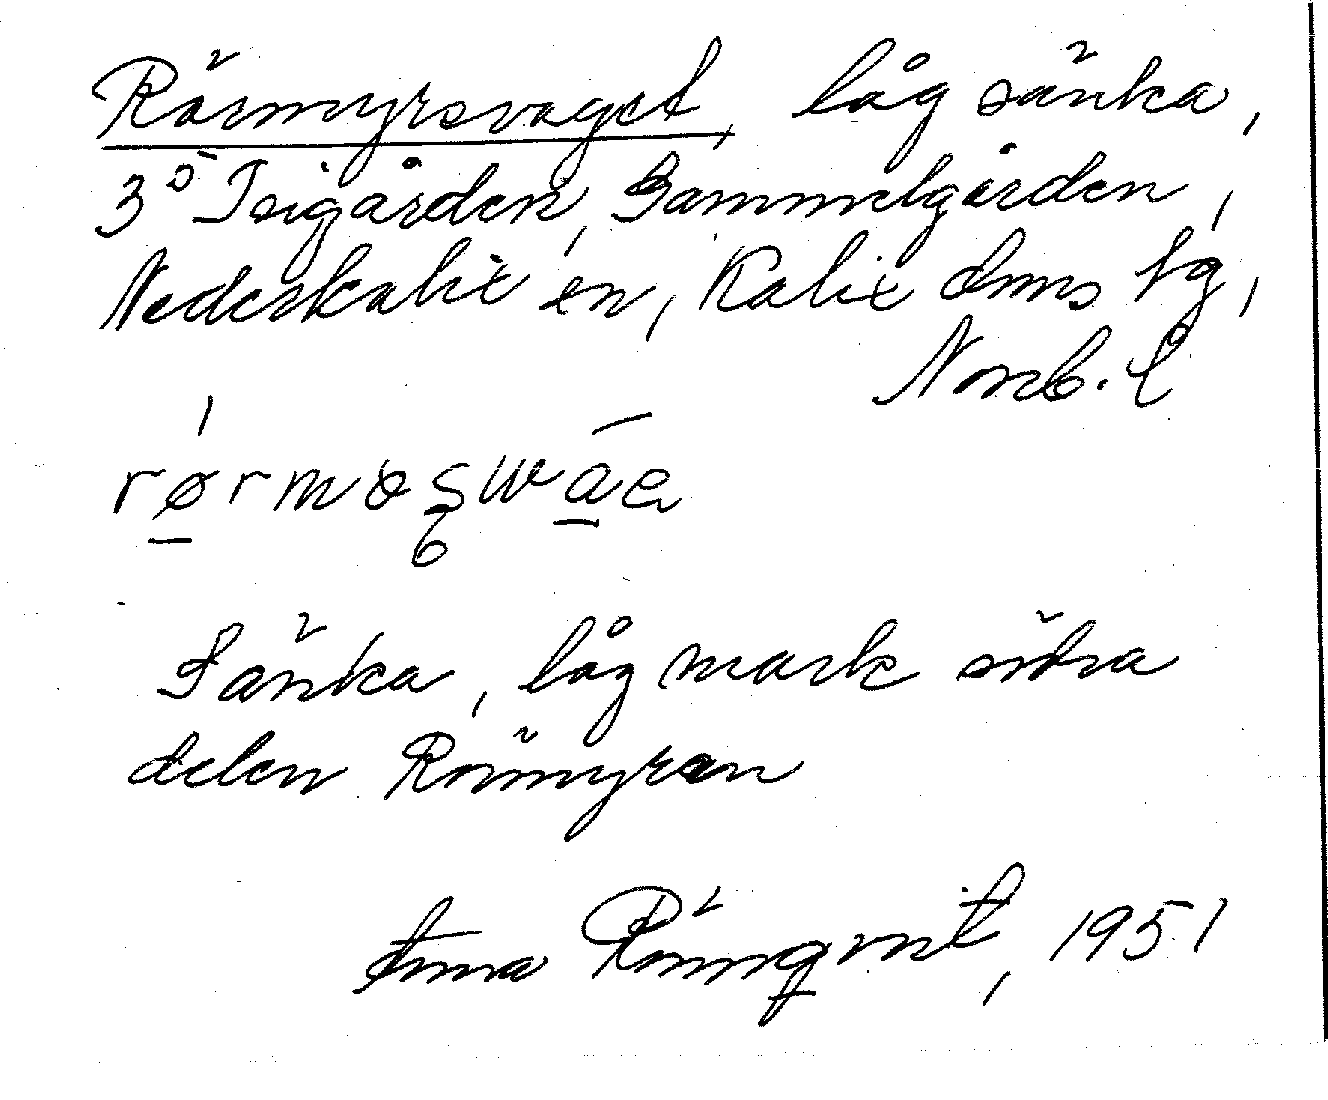 Rörmyrsvaget, låg sänka,
3⁵ Isigården, Gammelgården,
Nederkalix sn, Kalix dmns tg,
Norrb. l
rørmøswáe
Sänka, låg mark södra
delen Rörmyran
Anna Rönnqvist, 1951